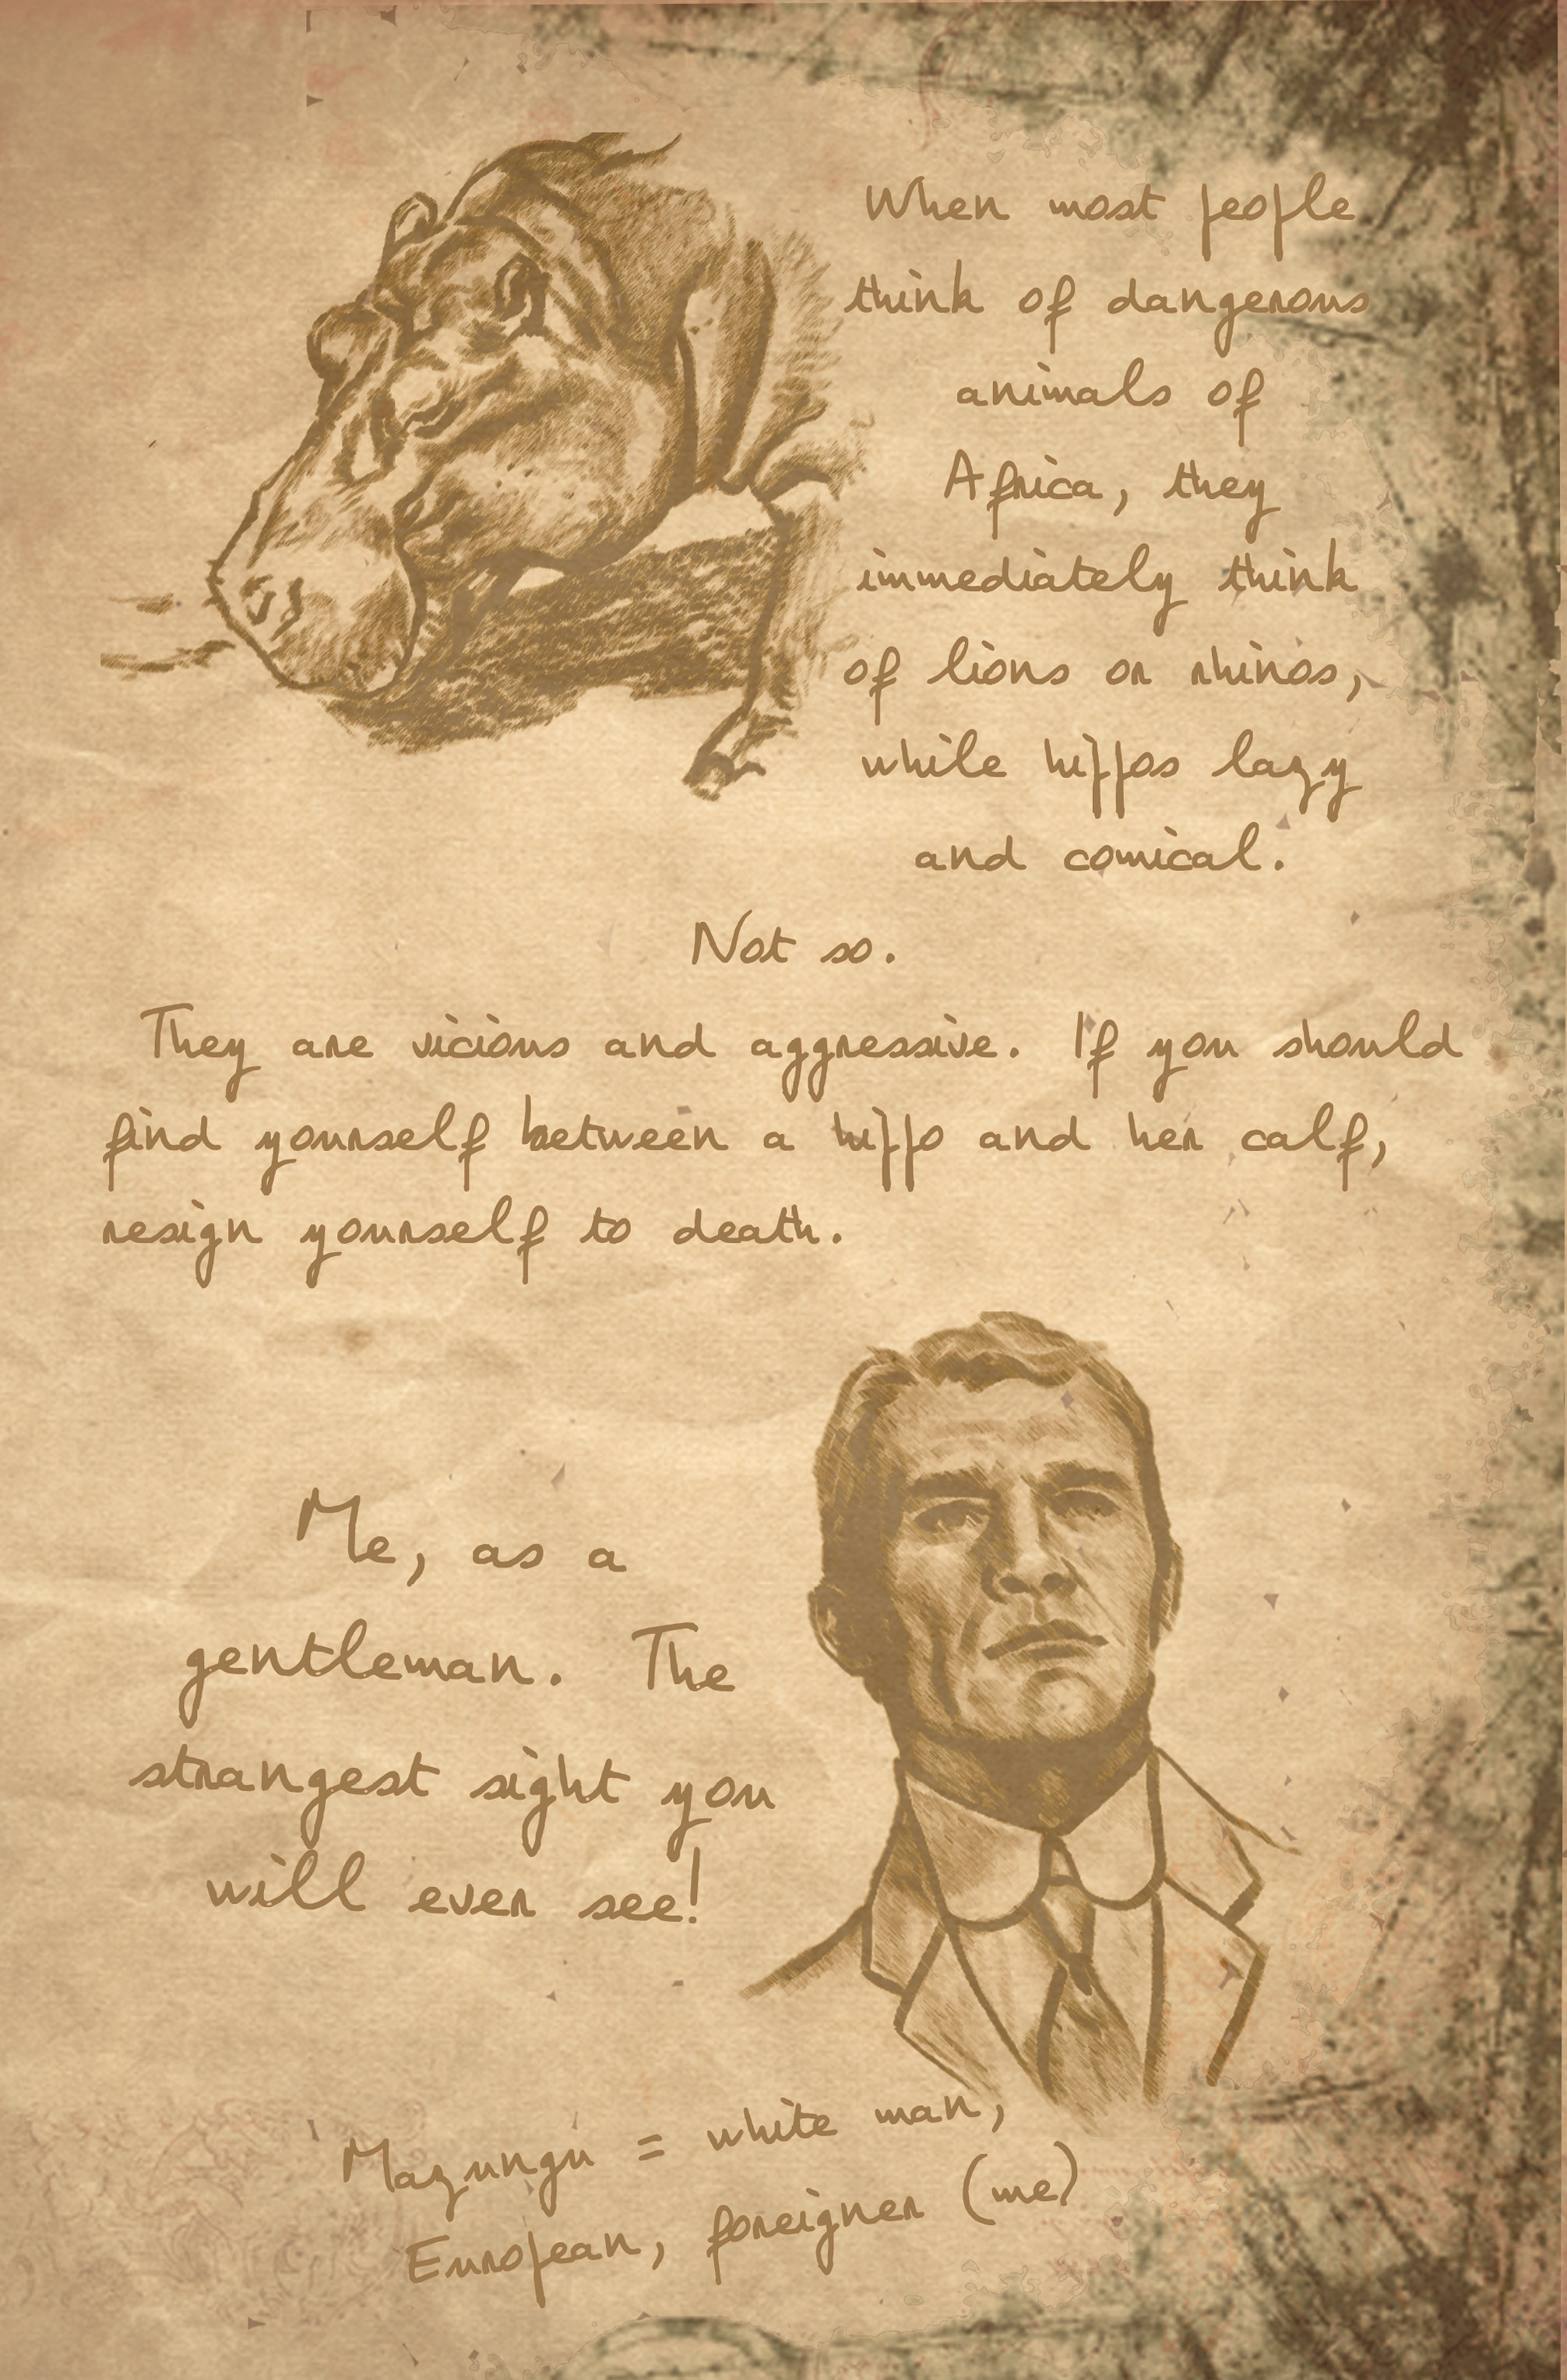 When most people
think of dangerous
animals of
Africa, they
immediately think
of lions or rhinos,
while hippos lazy
and comical.
Not so.
They are vicious and aggressive. If you should
find yourself between a hippo and her calf,
resign yourself to death.
Me, as a
gentleman. The
strangest sight you
will ever see!
Mazungu = white man,
European, foreigner (me)